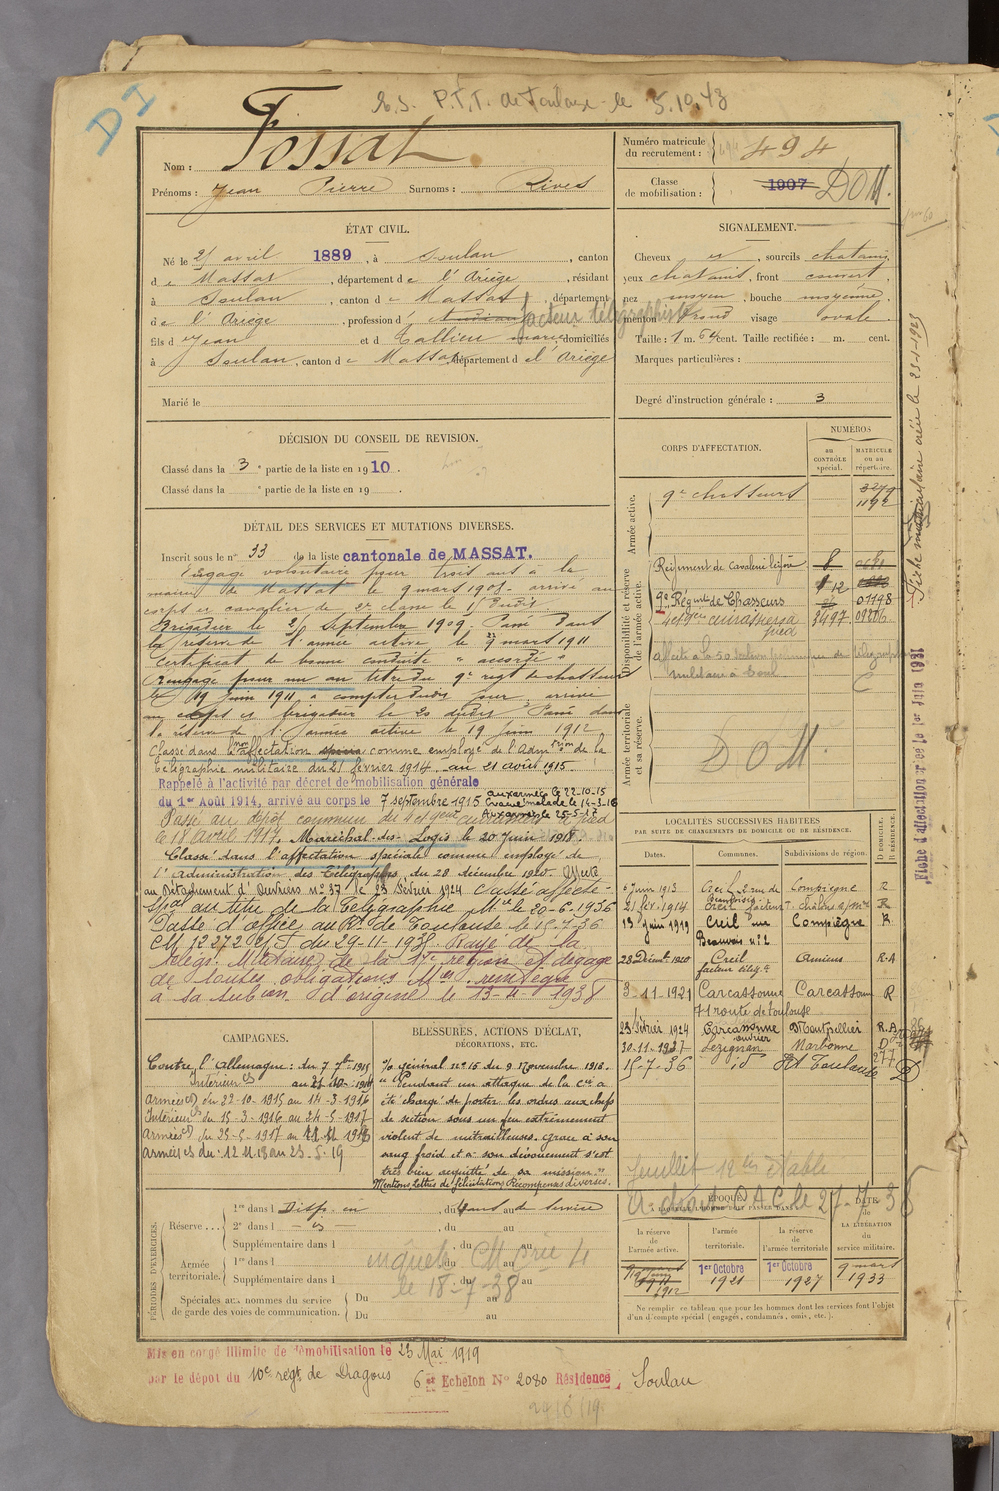 D I
P.T.T. de Toulouse le 5.10.43
Nom : Fossat
Prénoms : Jean Pierre Surnoms : Rives
Numéro matricule
du recrutement : 494
Classe
de mobilisation : 1907 DOM.
ÉTAT CIVIL.
Né le 21 avril 1889, à Soulan, canton
de Massat, département de l'Ariège, résidant
à Soulan, canton de Massat, département
de l'Ariège, profession d' facteur télégraphiste
fils de Jean et de Tallieu marie domiciliés
à Soulan, canton de Massat, département de l'Ariège
Marié le
SIGNALEMENT.
Cheveux et, sourcils chatains
yeux chatains, front couvert
nez moyen, bouche moyenne
menton rond visage ovale
Taille : 1 m. 64 cent. Taille rectifiée : m. cent.
Marques particulières :
Degré d'instruction générale : 3
DÉCISION DU CONSEIL DE REVISION.
Classé dans la 3e partie de la liste en 1910.
Classé dans la e partie de la liste en 19 .
DÉTAIL DES SERVICES ET MUTATIONS DIVERSES.
Inscrit sous le n° 33 de la liste cantonale de MASSAT.
Engagé volontaire pour trois ans à la
mairie de Massat le 9 mars 1908. arrivé au
corps et cavalier de 2e classe le 1 dudit
Brigadier le 21 septembre 1909. Passé dans
la réserve de l'armée active le 9 mars 1911
Certificat de bonne conduite "accordé"
Rengagé pour un an titre du 9e régt de chasseurs
le 19 juin 1911 à compter dudit jour arrivé
au corps et brigadier le 20 dudit Passé dans
la réserve de l'armée active le 19 juin 1912
Classé dans la non affectation comme employé de l'Admtion de la
télégraphie militaire du 21 février 1914 au 21 août 1915.
Rappelé à l'activité par décret de mobilisation générale
du 1er Août 1914, arrivé au corps le 7 septembre 1915 aux armées le 22-10-15
Evacué malade le 14-3-16
Aux armées le 25-5-17
Passé au dépôt commun des 4 et 9eme cuirassiers à pied
le 18 avril 1917. Maréchal-des-Logis le 20 Juin 1918.
Classé dans l'affectation spéciale comme employé de
l'Administration des Télégraphes, du 28 décembre 1920. Affecté
au Détachement d'Ouvriers n° 37 le 23 Février 1924 Classé affecté
spal au titre de la Télégraphie Mre le 20-6-1936
Passé d'office au Rt de Toulouse le 15-7-36
CM 12272 du 29-11-1938 Rayé de la
télégr. Militaire de la 17e région et dégagé
de toutes obligations Mres réintégré
à sa subon d'origine le 13-4-1938
CORPS D'AFFECTATION.
NUMÉROS
au CONTRÔLE spécial.
MATRICULE ou au répertoire.
Armée active.
9e chasseurs 3279
1192
Disponibilité et réserve de l'armée active.
Régiment de Cavalerie légère 8
12
9e Régiment de Chasseurs 01198
4 et 9e cuirassiers à pied 3497 09206
affecté à la 50 section de télégraphie
militaire à
Armée territoriale et sa réserve.
D O M.
LOCALITÉS SUCCESSIVES HABITÉES
PAR SUITE DE CHANGEMENTS DE DOMICILE OU DE RÉSIDENCE.
Dates. Communes. Subdivisions de région. D DOMICILE. R RÉSIDENCE.
6 Juin 1913 Creil 2 rue de Beauvaisis Compiègne R
21 fév 1914 Creil facteur R
13 Juin 1919 Creil rue Beauvais n° 2 Compiègne R
28 Décembr 1920 Creil facteur télég. Amiens R-A
3-11-1921 Carcassonne Carcassonne R
71 route de Toulouse
23 Février 1924 Carcassonne ouvrier Montpellier R.A
30-11-1927 Lézignan Narbonne D
15-7-36 id Toulouse 277 D
CAMPAGNES.
Contre l'Allemagne : du 7 7bre 1915
Intérieur CS au 21-10-1915
Armées du 22-10-1915 au 14-3-1916
Intérieur CS du 15-3-1916 au 24-5-1917
Armées du 25-5-1917 au 11 11 1918
Armées CS du : 12 11 18 au 23-5-19
BLESSURES, ACTIONS D'ÉCLAT,
DÉCORATIONS, ETC.
O/ Général n° 15 du 9 Novembre 1918.
"Pendant une attaque de la Cie a
été chargé de porter les ordres aux chefs
de section sous un feu extrêmement
violent de mitrailleuses. Grâce à son
sang froid et à son dévouement s'est
très bien acquitté de sa mission."
Mentions, Lettres de félicitations, Récompenses diverses.
PÉRIODES D'EXERCICES.
Réserve . . . 1re dans l Disp. en , du 4 ans au de service
2e dans l , du au
Supplémentaire dans l , du au
Armée territoriale. 1re dans l , du au
Supplémentaire dans l , du au
Spéciales aux hommes du service
de garde des voies de communication. Du au
Du au
CM
le 18-7-38
Feuillet établi
27-7-36
ÉPOQUE
À LAQUELLE L'HOMME DOIT PASSER DANS
la réserve de l'armée active. l'armée territoriale. la réserve de l'armée territoriale
DATE de LA LIBÉRATION du service militaire.
1912 1er Octobre 1921 1er Octobre 1927 9 mars 1933
Ne remplir ce tableau que pour les hommes dont les services font l'objet
d'un décompte spécial (engagés, condamnés, omis, etc.).
Fiche matriculaire créée le 23-1-1925
Fiche d'affectation créée le 1er Juin 1931
Mis en congé illimité de démobilisation le 23 Mai 1919
par le dépôt du 10e régt de Dragons 6e Echelon N° 2080 Résidence, Soulan